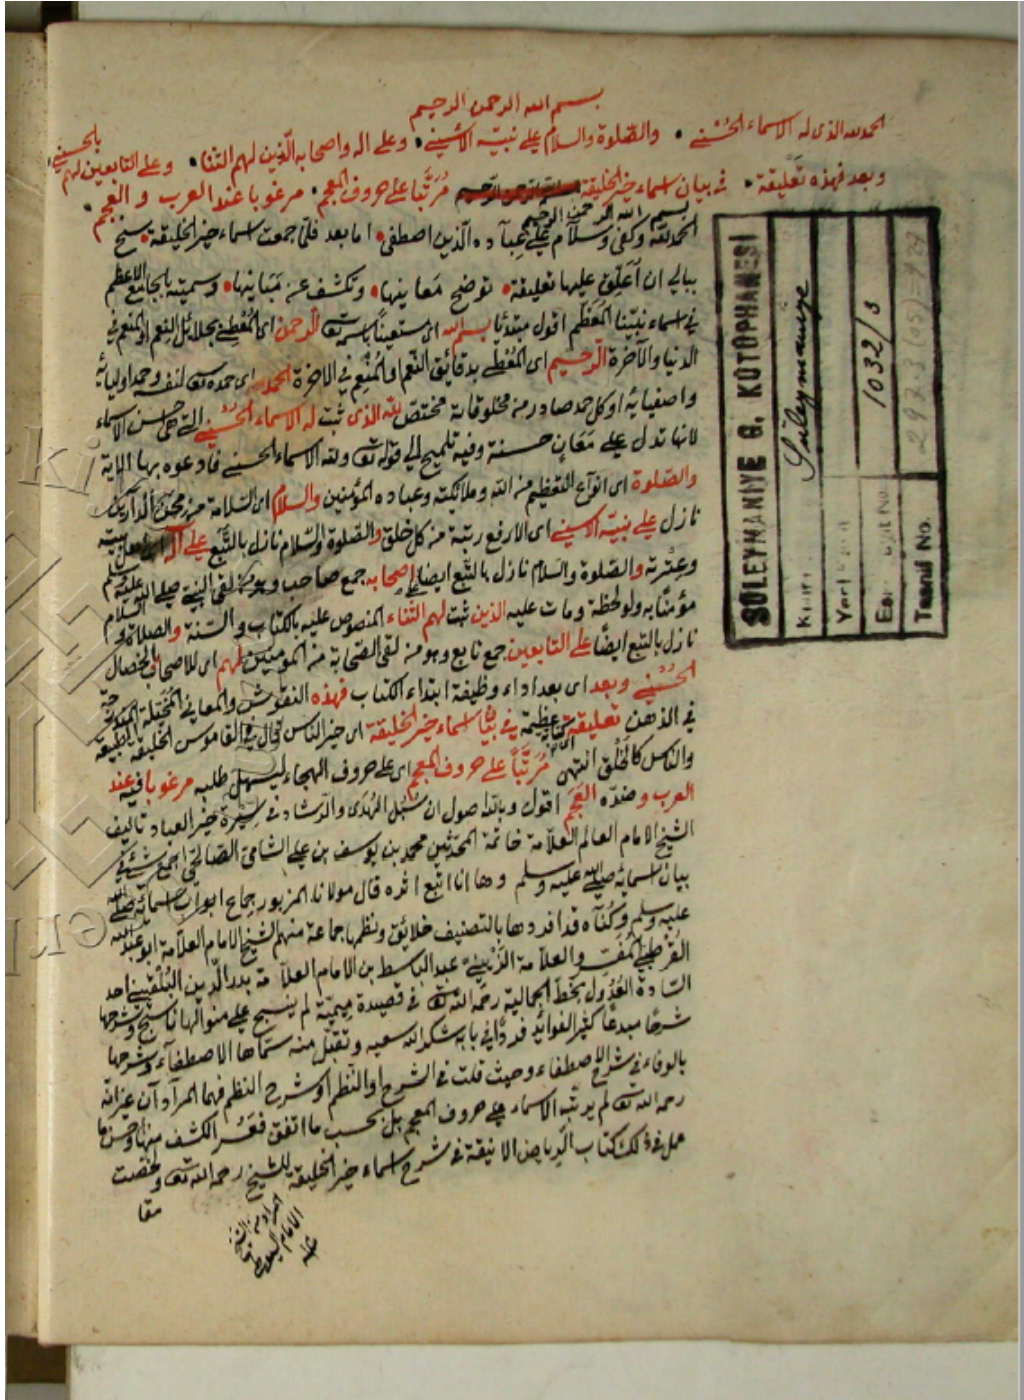 بسم الله الرحمن الرحيم
الحمد لله الذى له الاسماء الحُسْنٰى • والصّلوة والسلام على نبيّه الأسْنٰى • وعلى اله واصحابه الّذين لهم الثنا • وعلى التابعين لهم بالحسنى •
وبعد فهذه تعليقة • فى بيان اسماء خير الخليقة مُرَتَّبا على حروف المعجم • مرغوبا عند العرب والعجم •
بسم الله الرحمن الرحيم
الحمد لله وكفى وسلام على عباده الّذين اصطفى • اما بعد فلمّا جمعت اسماء خير الخليقة • سنح
ببالى ان اُعَلِّق عليها تعليقة • توضح معانيها • وتكشف عن مَبَانيها • وسميته بالجامع الاعظم
فى اسماء نبيّنا المُعَظَّم اقول مبتدئا بسم الله اى مستعينًا باسم الله تعـ الرحمن اى المُعْطى بجلائل النِعم او المنعم فى
الدنيا والآخرة الرّحيم اى المُعْطى بدقائق النّعم او المُنْعِم فى الاخرة الحمد لله اى حمده تعـ لنفسه وحمد اوليائه
واصفيائه او كل حمد صادر من مخلوقاته مختصّ لله الذى ثبت له الاسماء الحُسْنٰى التى هى احسن الاسماء
لانها تدل على مَعَانٍ حسنة وفيه تلميح الى قوله تعـ ولله الاسماء الحسنى فادعوه بها الاية
والصّلوة اى انواع التعظيم من الله وملائكته وعباده المؤمنين والسلام اى السّلامة من محن الدارين
نازل على نبيّه الاسنى اى الارفع رتبة من كل خلق والصّلوة والسّلام نازل بالتَّبع على آله اى اهل بيته
وعِتْرته والصّلوة والسّلام نازل بالتّبع ايضا على اصحابه جمع صاحب وهو من لقى النبى صلى الله عليه وسلم
مؤمنًا به ولو لحظة ومات عليه الذين ثبت لهم الثّناء المنصوص عليه بالكتاب والسّنة والصلاة والسّلام
نازل بالتّبع ايضًا على التابعين جمع تابع وهو من لقى الصّحابة من المؤمنين لهم اى للاصحاب بالخصال
الحُسْنٰى وبعد اى بعد اداء وظيفة ابتداء الكتاب فهذه النقوش والمعانى المُتَخيَّلة
فى الذهن تعليقة عظيمة فى بيان اسماء خير الخليقة اى خير الناس قال فى القاموس الخليقة الطبيعة
والنّاس كالخَلْق انتهى مُرَتَّبًا على حروف المعجم اى على حروف الهجاء ليسهل طلبه مرغوبا فيه عند
العرب وضدّه العَجَم اقول وبالله اصول ان سُبُل الهُدَى والرّشاد فى سِيْرَة خير العباد تاليف
الشيخ الامام العالم العلّامة خاتمة المحدّثين محمد بن يوسف بن على الشامى الصّالحى اجمع شئ فى
بيان اسمائه صلى الله عليه وسلم وها انا اتبع اثره قال مولانا المزبور جماع ابواب اسمائه صلى الله
عليه وسلم وكُنَاه قد افردها بالتصنيف خلائق ونظمها جماعة منهم الشيخ الامام العلّامة ابو عبد الله
القُرطبى المُفَسِّر والعلّامة الزَّيْنِىُّ عبد الباسط بن الامام العلّامة بدر الدّين البُلْقَينِى احد
السّادة العُدُول بخطّ الجمالية رحمه الله تعـ فى قصيدة مِيميّة لم ينسج على منوالها ناسج وشرحها
شرحًا مبدعًا كثير الفوائد فردًا فى بابه شكر الله سعيه وتقبل منه سمّاها الاصطفاء وشرحها
بالوفاء فى شرح الاصطفاء وحيث قلت فى الشرح او النّظم او شرح النظم فهما المراد ان غير انّه
رحمه الله تعـ لم يرتّبه الاسماء على حروف المعجم بل بحسب ما اتفق فعَسُر الكشف منها واحسن ما
عمل فى ذلك كتاب الرّياض الانيقة فى شرح اسماء خير الخليقة للشيخ رحمه الله تعـ ولخصت
مقا
المراد من الشيخ
الامام السيوطى
SÜLEYMANİYE G. KÜTÜPHANESİ
Süleymaniye
1032/3
297.3 (05) = 927
Tasnif No.